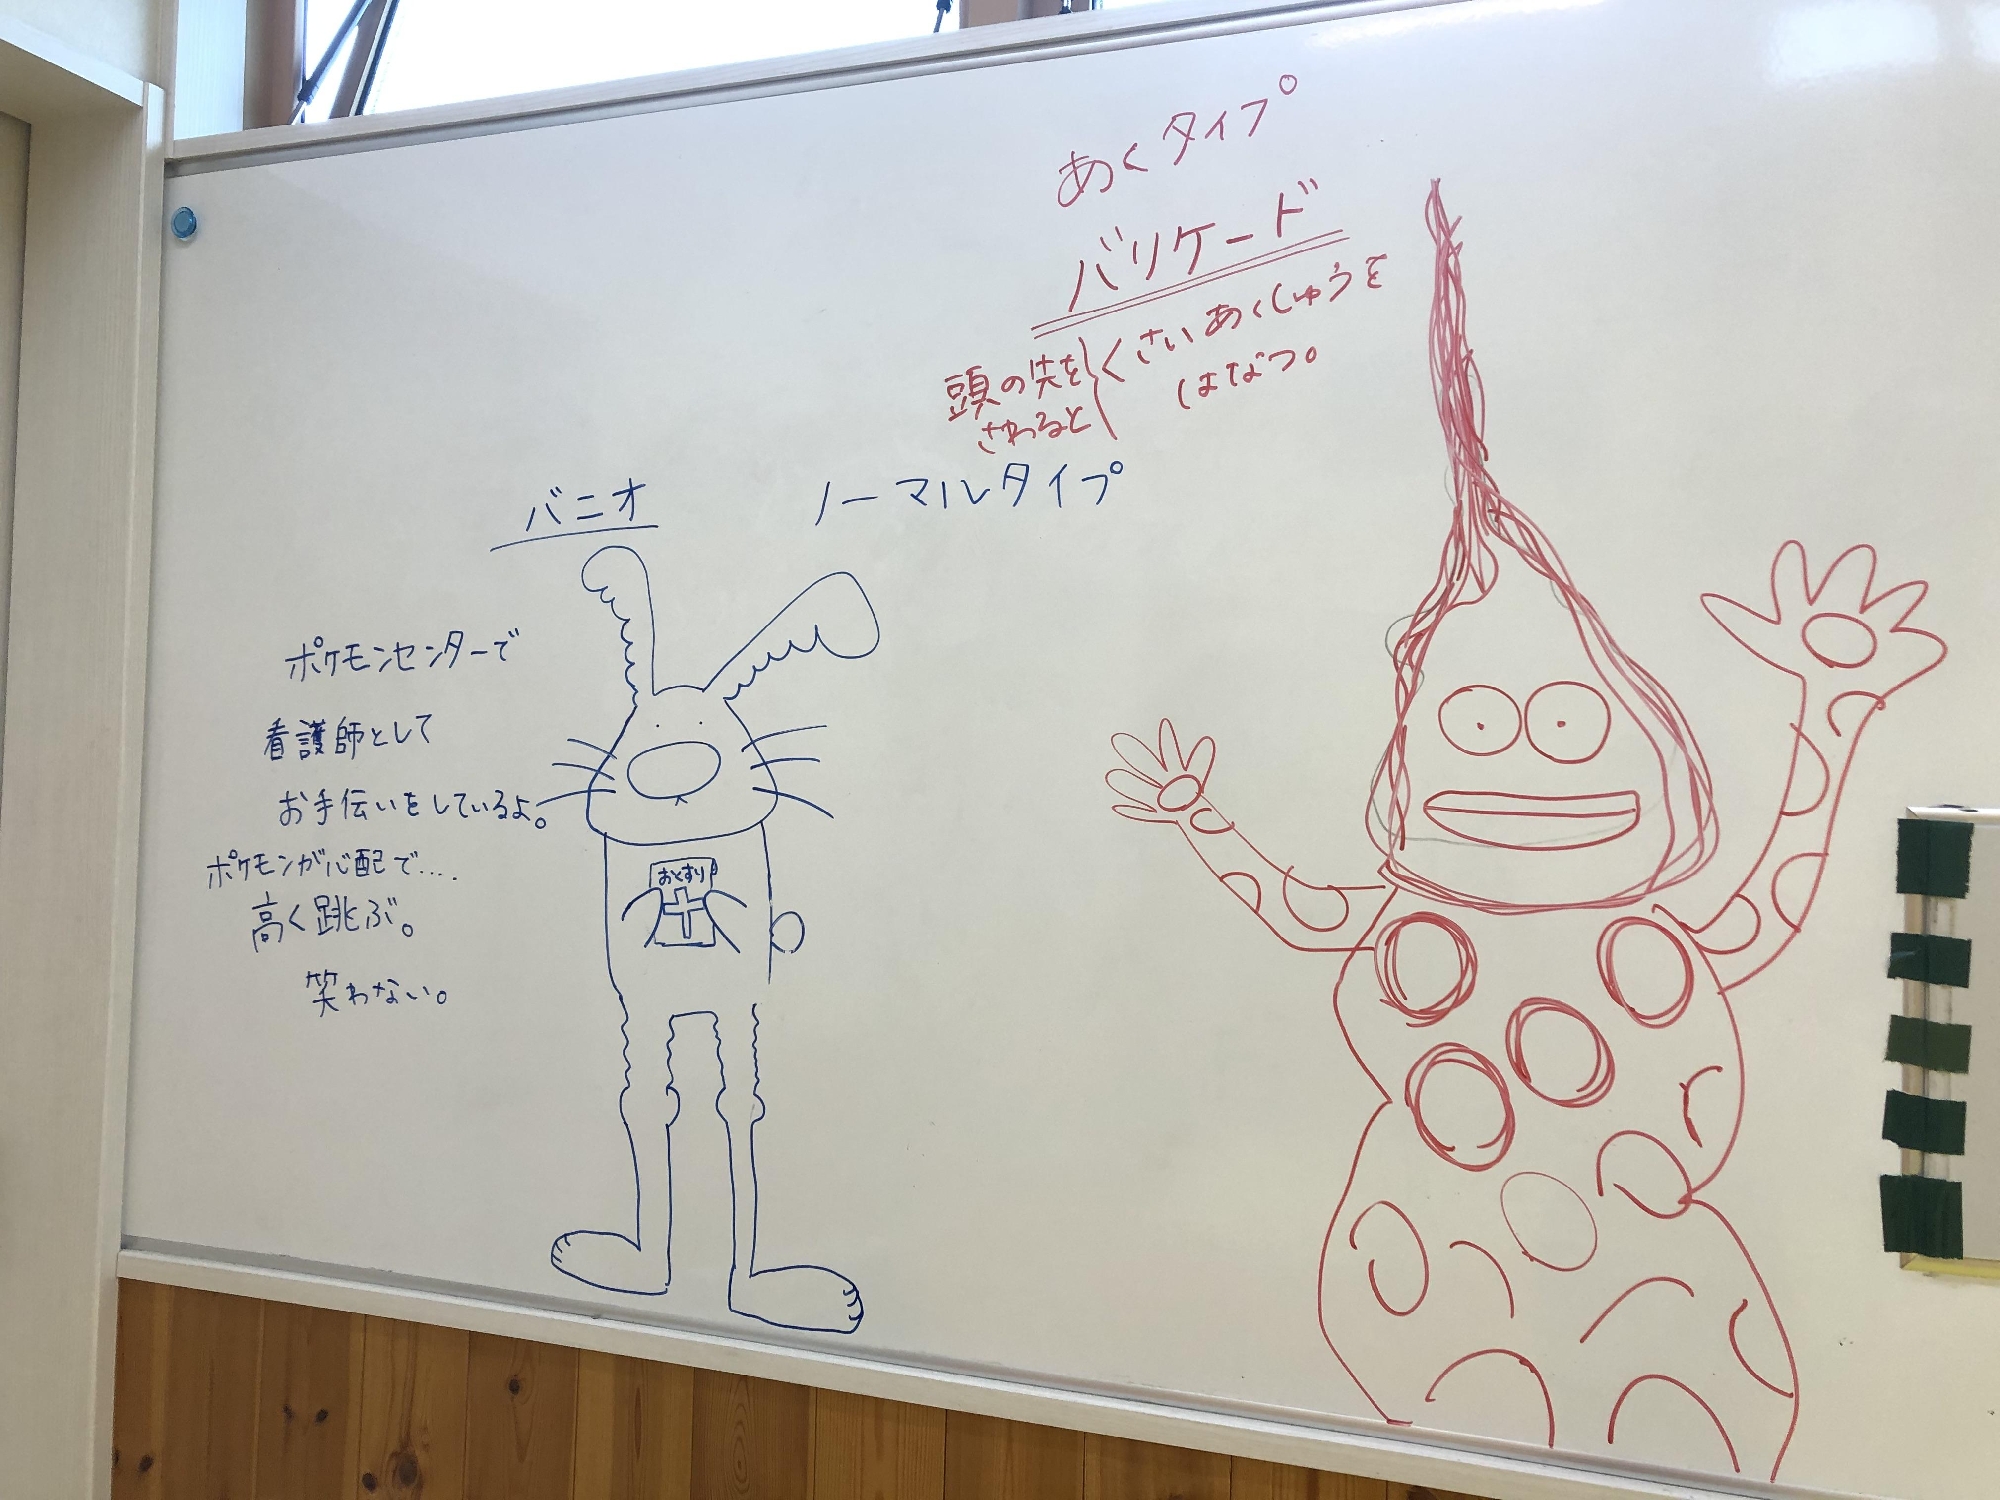 あくタイプ
バリケード
頭の先を
さわると
くさいあくしゅうを
はなつ。
バニオ
ノーマルタイプ
ポケモンセンターで
看護師として
お手伝いをしているよ。
ポケモンが心配で....
高く跳ぶ。
笑わない。
おくすり